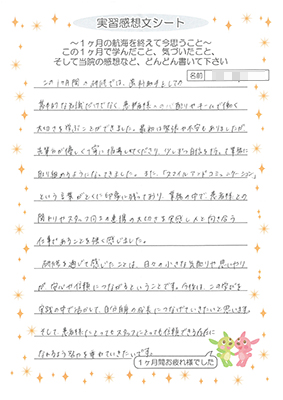 実習感想文シート
～1ヶ月の航海を終えて今思うこと～
この1ヶ月で学んだこと、気づいたこと、
そして当院の感想など、どんどん書いて下さい
名前
この1ヶ月間の研修では、歯科助手としての
基本的な知識だけでなく、患者様への心配りやチームで働く
大切さを学ぶことができました。最初は緊張や不安もありましたが
先輩方が優しく丁寧に指導してくださり、少しずつ自信を持って業務に
取り組めるようになってきました。また、「スマイルアンドコミュニケーション」
という言葉がとくに印象に残っており、業務の中で患者様との
関わりやスタッフ同士の連携の大切さを実感し人と向き合う
仕事であることを強く感じました。
研修を通じて感じたことは、日々の小さな気配りや思いやり
が安心や信頼につながるということです。今後は、この学びを
実践の中で活かして、自分自身の成長につなげていきたいと思います。
そして、患者様にとってもスタッフにとっても信頼できる存在に
なれるよう努力を重ねていきたいです。
1ヶ月間お疲れ様でした